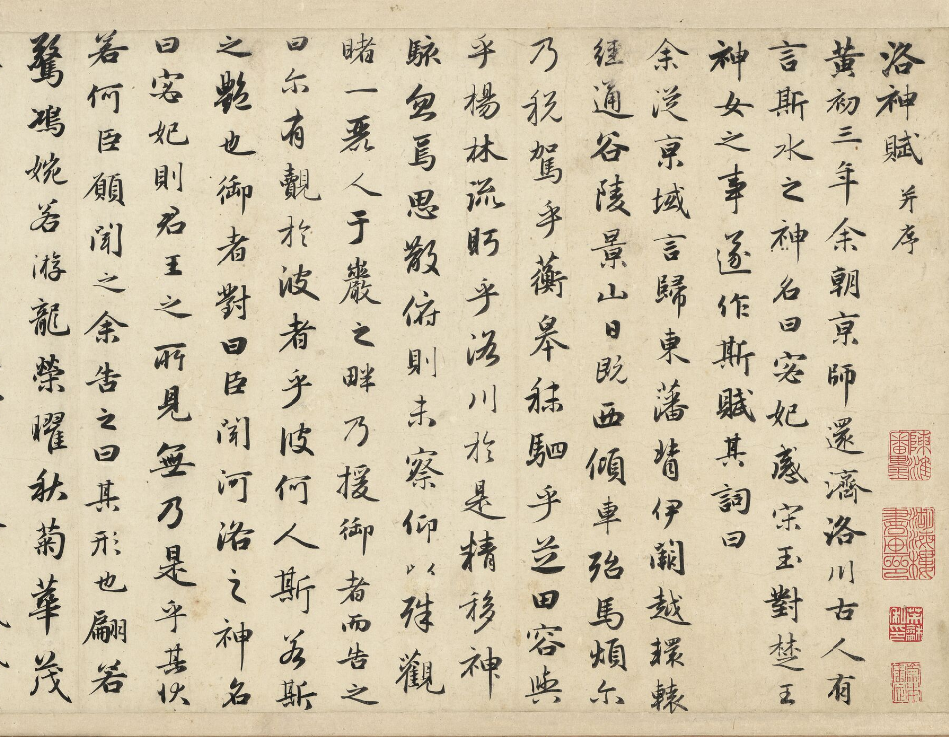 洛神賦 并序
黃初三年余朝京師還濟洛川古人有
言斯水之神名曰宓妃感宋玉對楚王
神女之事遂作斯賦其詞曰
余從京域言歸東藩背伊闕越轘轅
經通谷陵景山日既西傾車殆馬煩尒
乃稅駕乎蘅皋秣駟乎芝田容與
乎楊林流眄乎洛川於是精移神
駭忽焉思散俯則未察仰以殊觀
睹一麗人于巖之畔乃援御者而告之
曰尒有覿於彼者乎彼何人斯若斯
之艷也御者對曰臣聞河洛之神名
曰宓妃則君王之所見無乃是乎其狀
若何臣願聞之余告之曰其形也翩若
驚鴻婉若游龍榮曜秋菊華茂